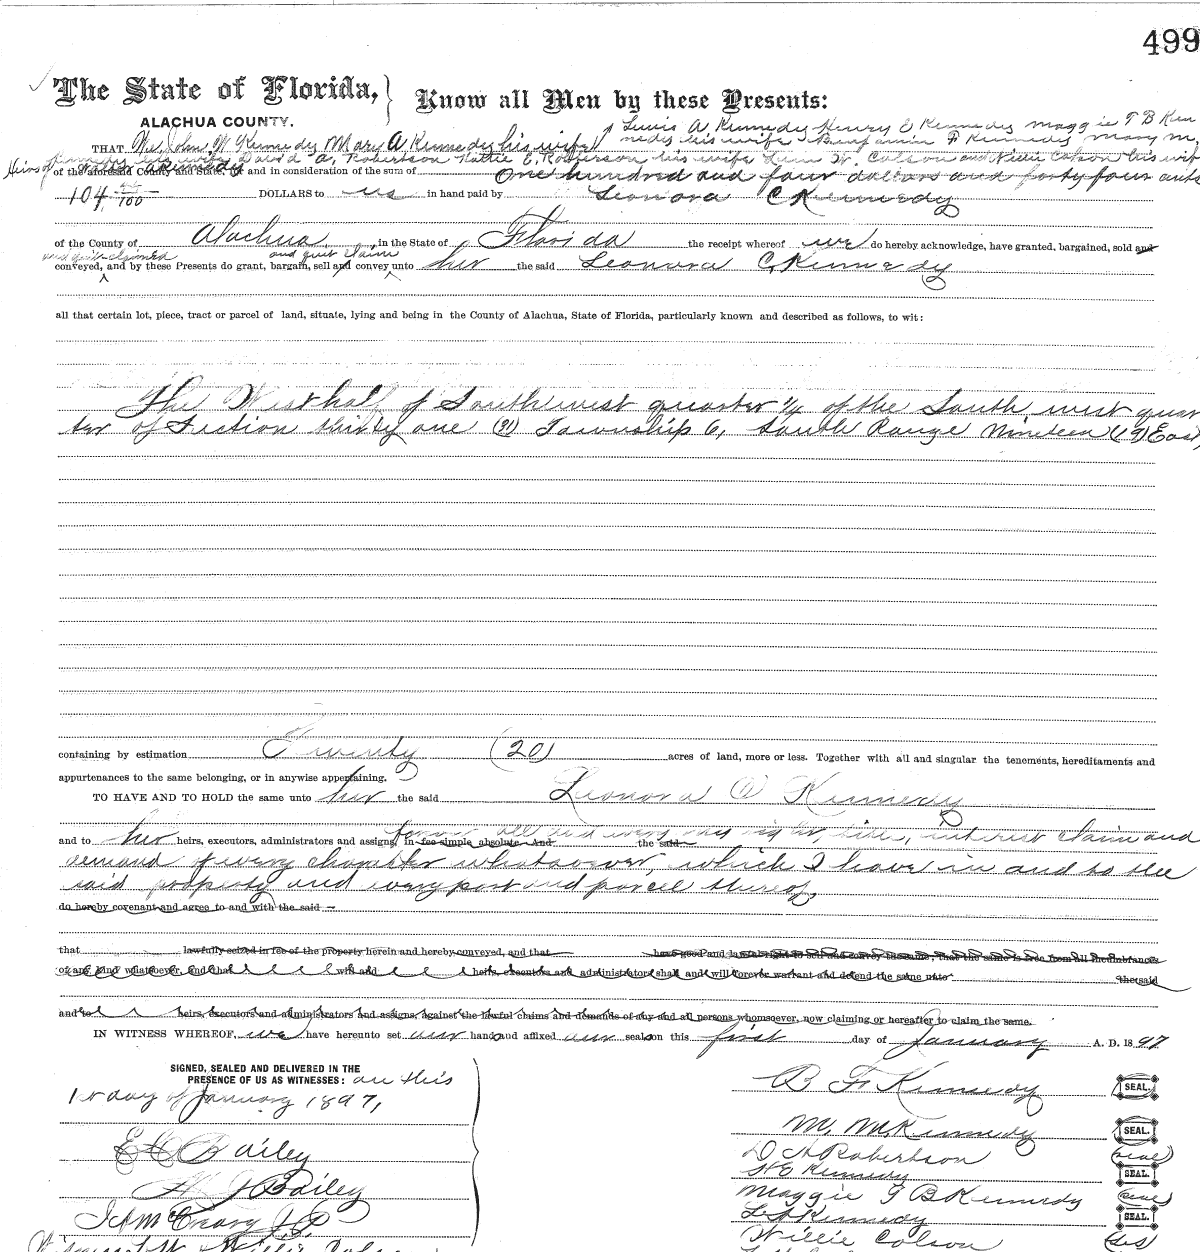 499
The State of Florida,
ALACHUA COUNTY.
Know all Men by these Presents:
Lewis A. Kennedy Henry E Kennedy Maggie T B Ken
THAT We John W Kennedy Mary A. Kennedy his wife
nedy his wife Benjamin F Kennedy Mary M.
Kennedy his wife David A. Robertson Hattie E. Robertson his wife W. Colson and Willie Colson his wife
Heirs of Kennedy
of the aforesaid County and State, for and in consideration of the sum of One hundred and four dollars and forty four cents
104 44/100 DOLLARS to us in hand paid by Leonora C Kennedy
of the County of Alachua in the State of Florida the receipt whereof we do hereby acknowledge, have granted, bargained, sold and
and quit-claimed and quit claim
conveyed, and by these Presents do grant, bargain, sell and convey unto her the said Leonora C. Kennedy
all that certain lot, piece, tract or parcel of land, situate, lying and being in the County of Alachua, State of Florida, particularly known and described as follows, to wit:
The West half of Southwest quarter ¼ of the South west quar
ter of Section thirty one (31) Township 6, South Range Nineteen (19) East,
containing by estimation Twenty (20) acres of land, more or less. Together with all and singular the tenements, hereditaments and
appurtenances to the same belonging, or in anywise appertaining.
TO HAVE AND TO HOLD the same unto her the said Leonora C Kennedy
and to her heirs, executors, administrators and assigns, in fee simple absolute. And the said
all and every right, title, interest claim and
demand of every character whatsoever, which I have in and to the
said property and every part and parcel thereof,
do hereby covenant and agree to and with the said
that lawfully seized in fee of the property herein and hereby conveyed, and that have good and lawful right to sell and convey the same; that the same is free from all incumbrances
of any kind whatsoever, and that will and heirs, executors and administrators shall and will forever warrant and defend the same unto the said
and to heirs, executors and administrators and assigns, against the lawful claims and demands of any and all persons whomsoever, now claiming or hereafter to claim the same.
IN WITNESS WHEREOF, we have hereunto set our hand and affixed our seals on this first day of January A. D. 1897
SIGNED, SEALED AND DELIVERED IN THE
PRESENCE OF US AS WITNESSES: on this
1st day of January 1897,
B F Kennedy SEAL.
E Bailey
M. M. Kennedy SEAL.
D A Robertson (seal)
H J Bailey
H E Kennedy SEAL.
Maggie T B Kennedy (seal)
J A McCreary J.P.
L A Kennedy SEAL.
Willie Colson
Willie Colson